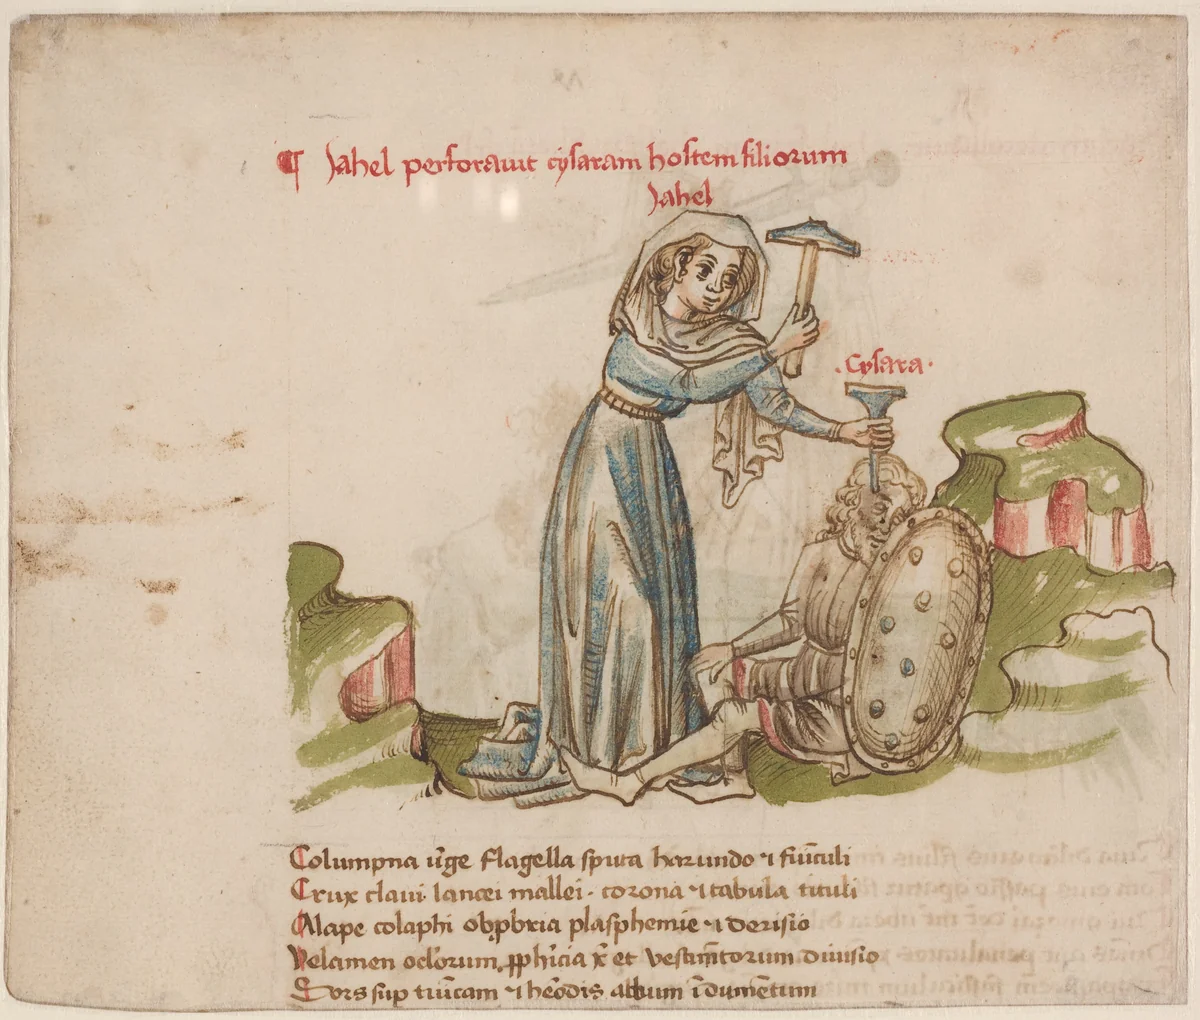 ¶ Jahel perforavit cysaram hostem filiorum
Jahel
. Cysara .
Columpna ūge flagella sputa harundo ⁊ fūiculi
Crux clavi lancei mallei . corona ⁊ tabula tituli
Alape colaphi obpbria plasphemie ⁊ derisio
Velamen oclorum, et vestimtorum divisio
Sors sup tunicam ⁊ hēodis album īdumētum